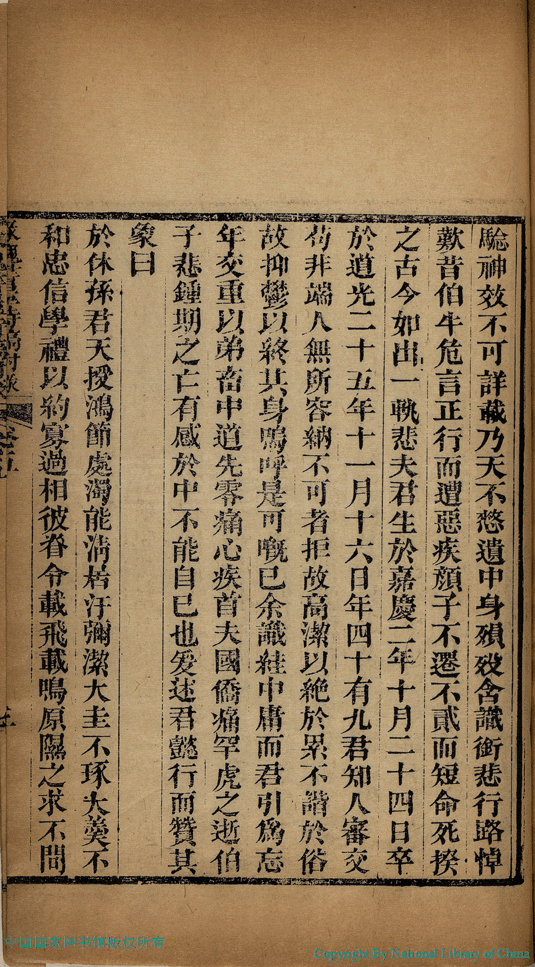 驗神效不可詳載乃天不憖遺中身殞歿含識銜悲行路悼
歎昔伯牛危言正行而遭惡疾顏子不遷不貳而短命死揆
之古今如出一軌悲夫君生於嘉慶二年十月二十四日卒
於道光二十五年十一月十六日年四十有九君知人審交
苟非端人無所容納不可者拒故高潔以絶於累不諧於俗
故抑鬱以終其身嗚呼是可嘅已余識絓中庸而君引為忘
年交重以弟畜中道先零痛心疾首夫國僑痛罕虎之逝伯
子悲鍾期之亡有感於中不能自已也爰述君懿行而贊其
象曰
於休孫君天授鴻節處濁能淸居汙彌潔大圭不琢大羹不
和忠信學禮以約寡過相彼脊令載飛載鳴原隰之求不問
中國國家圖書館版權所有
Copyright By National Library of China